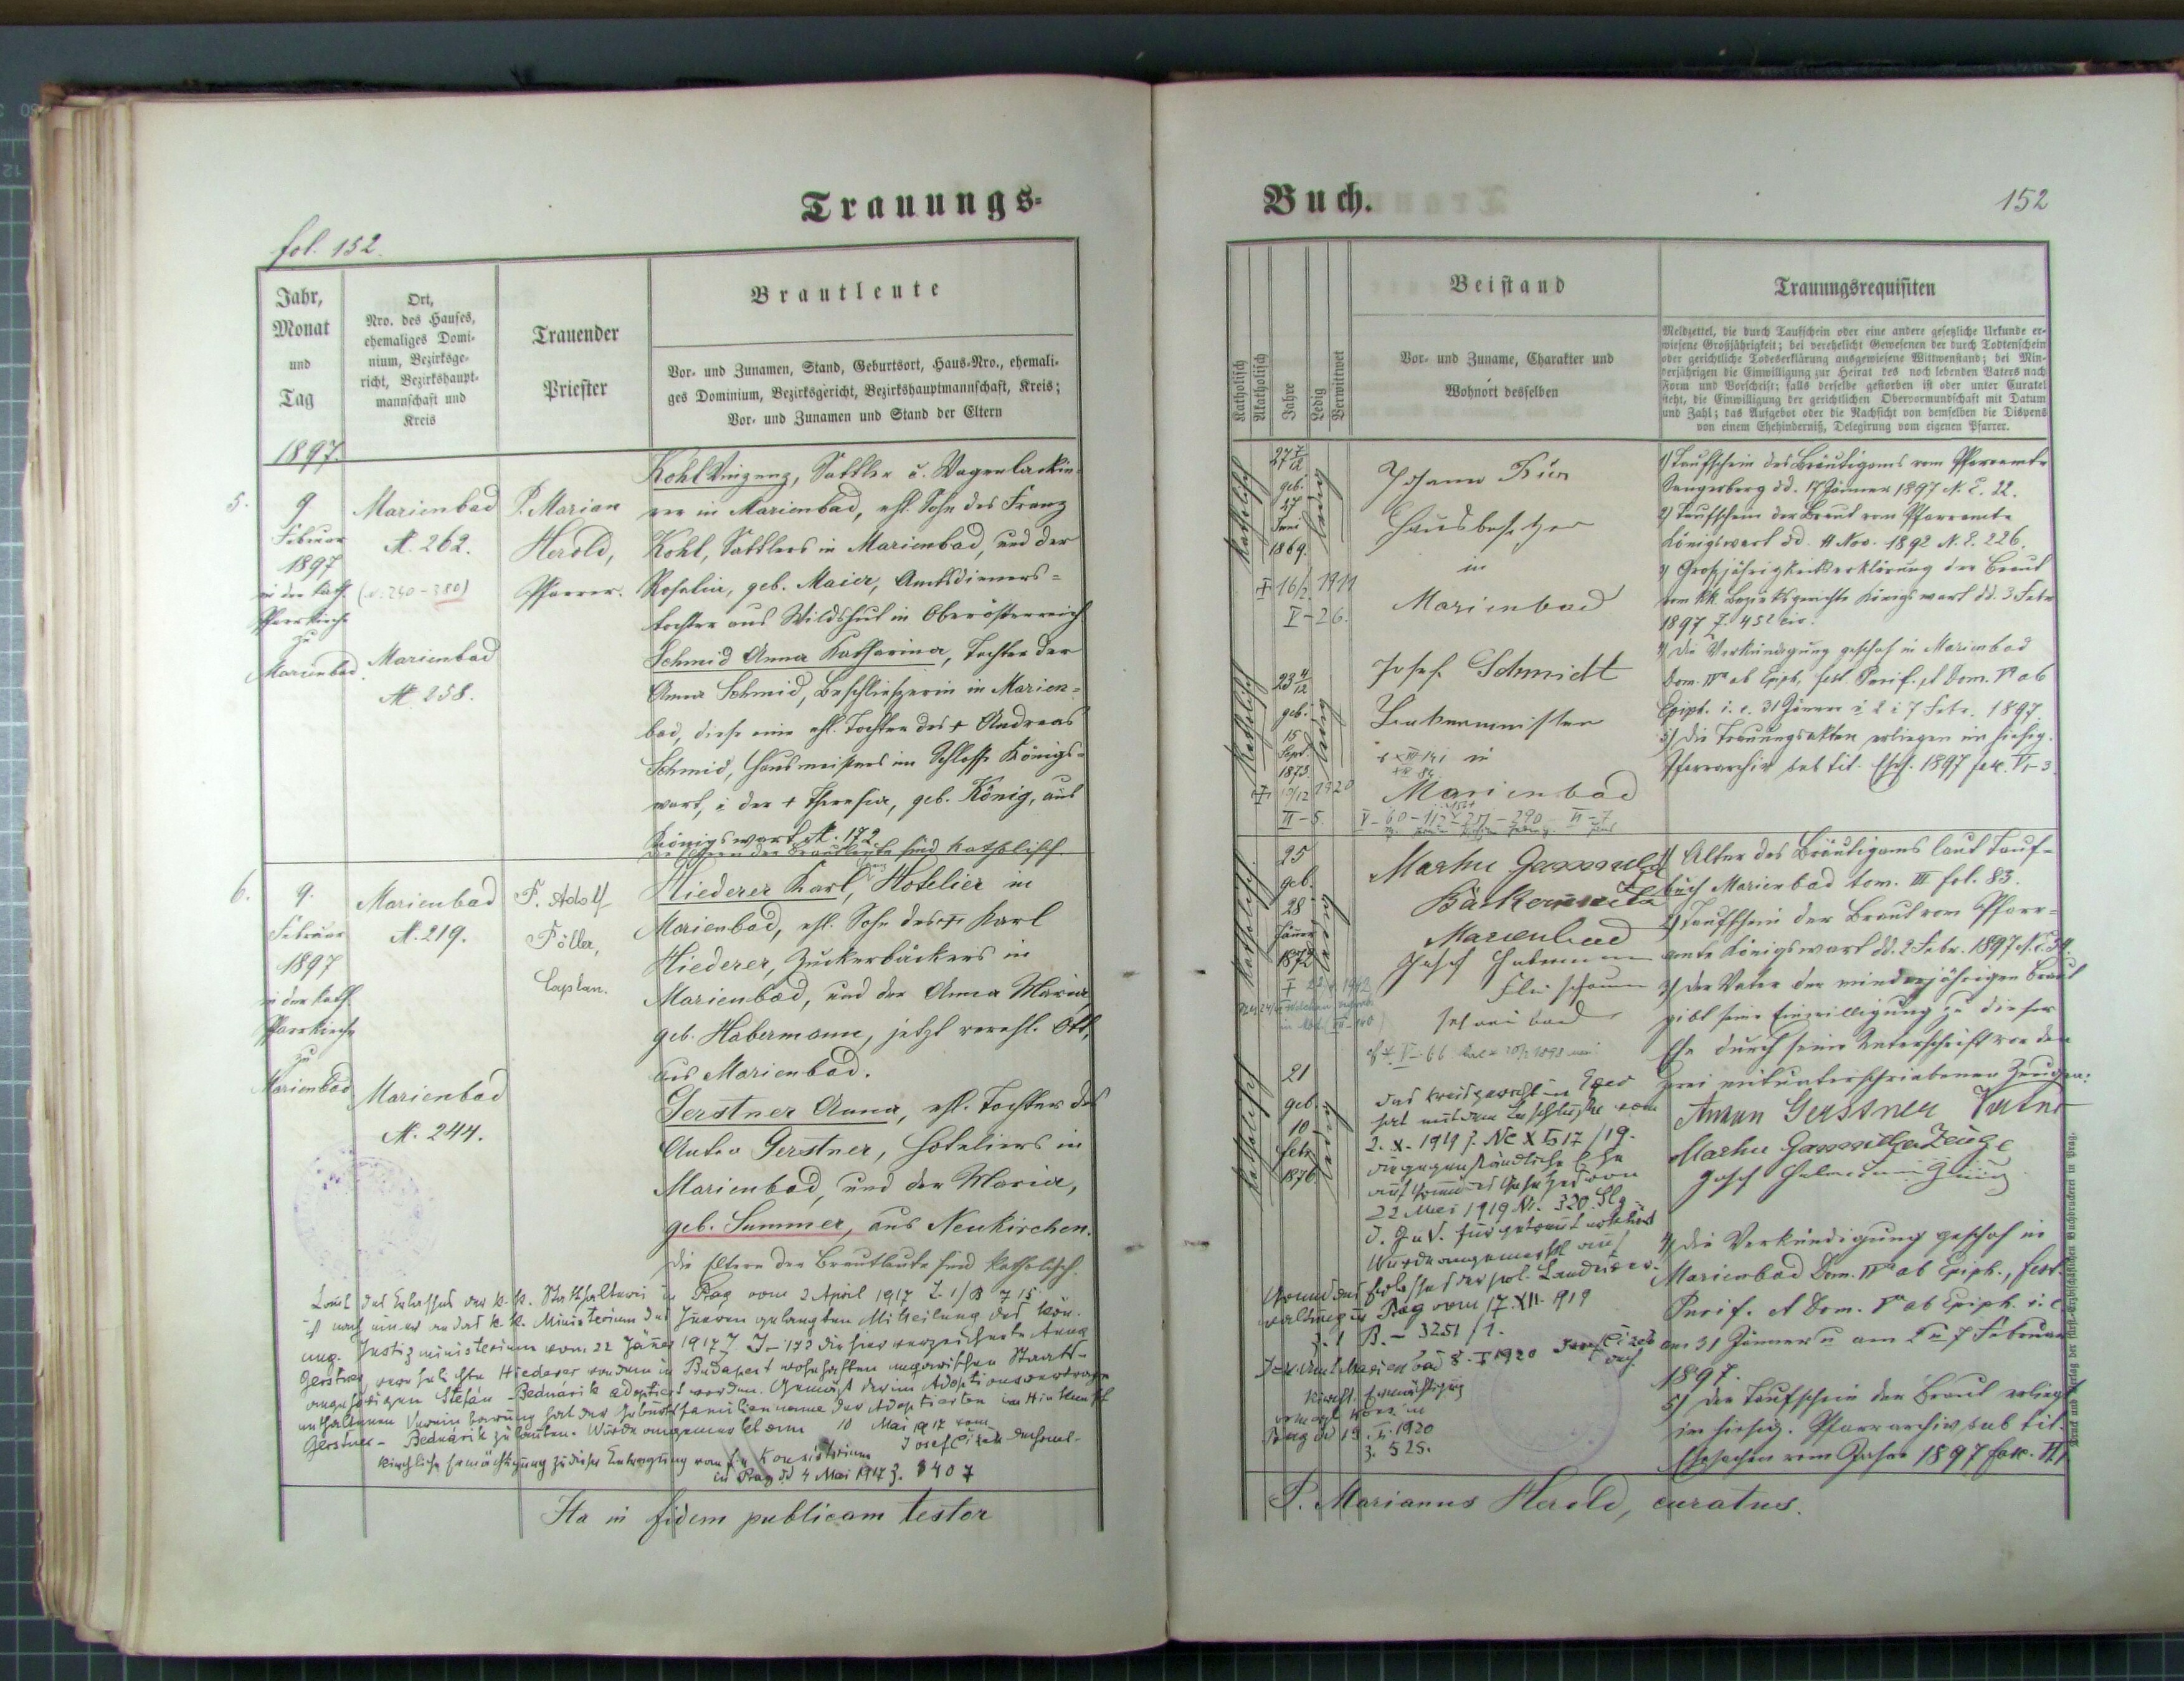 Trauungs-
fol. 152.
Jahr,
Monat
und
Tag
Ort,
Nro. des Hauses,
ehemaliges Domi-
nium, Bezirksge-
richt, Bezirkshaupt-
mannschaft und
Kreis
Trauender
Priester
Brautleute
Vor- und Zunamen, Stand, Geburtsort, Haus-Nro., ehemali-
ges Dominium, Bezirksgericht, Bezirkshauptmannschaft, Kreis;
Vor- und Zunamen und Stand der Eltern
1897.
5.
9.
Februar
1897
in der kath.
Pfarrkirche
zu
Marienbad.
Marienbad
N. 262.
(v. 240-280)
Marienbad
N. 258.
P. Marian
Herold,
Pfarrer.
Kohl Vinzenz, Sattler u. Wagenlackie-
rer in Marienbad, ehl. Sohn des Franz
Kohl, Sattlers in Marienbad, und der
Rosalia, geb. Maier, Amtsdieners-
tochter aus Wildshut in Oberösterreich
Schmid Anna Katharina, Tochter der
Anna Schmid, Beschließerin in Marien-
bad, diese eine ehl. Tochter des + Andreas
Schmid, Hausmeisters im Schlosse Königs-
wart, u. der + Theresia, geb. König, aus
Königswart N. 172
Die Eltern der Brautleute sind katholisch.
6.
9.
Februar
1897
in der kath.
Pfarrkirche
zu
Marienbad
Marienbad
N. 219.
Marienbad
N. 244.
P. Adolf
Föller,
Caplan.
Hiederer Karl, Hotelier in
Marienbad, ehl. Sohn des + Karl
Hiederer, Zuckerbäckers in
Marienbad, und der Anna Maria
geb. Habermann, jetzt verehl. Ott,
aus Marienbad.
Gerstner Anna, ehl. Tochter des
Anton Gerstner, Hoteliers in
Marienbad, und der Maria,
geb. Summer, aus Neukirchen.
Die Eltern der Brautleute sind katholisch.
Laut des Erlasses der k. k. Statthalterei in Prag vom 2 April 1917 Z. 1/B 715
ist nach einer an das k. k. Ministerium des Inneren gelangten Mitteilung des kön.
ung. Justizministerium vom 22 Jänner 1917 Z. J-173 die hier verzeichnete Anna
Gerstner, verehelichte Hiederer von dem in Budapest wohnhaften ungarischen Staats-
angehörigen Stefan Bednárik adoptiert worden. Gemäß der im Adoptionsvertrage
enthaltenen Vereinbarung hat der Geburtsfamilienname der Adoptierten im Hinkunft
Gerstner-Bednárik zu lauten. Wurde angemerkt am 10 Mai 1917 vom
Josef Čížek Dechant-
kirchliche Ermächtigung zu dieser Eintragung vom f. e. Konsistorium
in Prag dd 4 Mai 1917 Z. 8407
Ita in fidem publicam testor
Buch.
152
Katholisch
Akatholisch
Jahre
Ledig
Verwittwet
Beistand
Vor- und Zuname, Charakter und
Wohnort desselben
Trauungsrequisiten
Meldzettel, die durch Taufschein oder eine andere gesetzliche Urkunde er-
wiesene Großjährigkeit; bei verehelicht Gewesenen der durch Todtenschein
oder gerichtliche Todeserklärung ausgewiesene Wittwenstand; bei Min-
derjährigen die Einwilligung zur Heirat des noch lebenden Vaters nach
Form und Vorschrift; falls derselbe gestorben ist oder unter Curatel
steht, die Einwilligung der gerichtlichen Obervormundschaft mit Datum
und Zahl; das Aufgebot oder die Nachsicht von demselben die Dispens
von einem Ehehinderniß, Delegirung vom eigenen Pfarrer.
katholisch
27 7/12
geb.
27
Juni
1869.
ledig
+ 16/2 1911
V-26.
Johann
Hausbesitzer
in
Marienbad
katholisch
23 4/12
geb.
15
Sept
1873.
ledig
1920
II-5.
Josef Schmidt
in
Marienbad
1) Taufschein des Bräutigams vom Pfarramte
Sangerberg dd. 17 Jänner 1897 N. E. 22.
2) Taufschein der Braut vom Pfarramte
Königswart dd. 11 Nov. 1892 N. E. 226.
3) Großjährigkeitserklärung der Braut
vom kk. Bezirksgerichte Königswart dd. 3 Febr
1897
4) Die Verkündigung geschah in Marienbad
Dom. IVa ab Epiph., fest. Purif. et Dom. Va ab
Epiph. i. e. 31 Jänner u. 2 u. 7 Febr. 1897
5) Die Trauungsakten erliegen im hiesig.
Pfarrarchiv sub tit. Ehes. 1897
katholisch
25
geb.
28
Jänner
1872
ledig
Bäckermeister
Marienbad
Josef Habermann
1) Alter des Bräutigams laut Tauf-
buch Marienbad tom. III fol. 83.
2) Taufschein der Braut vom Pfarr-
amte Königswart dd. 2 Febr. 1897
3) Der Vater der minderjährigen Braut
gibt seine Einwilligung zu dieser
Ehe durch seine Unterschrift vor den
zwei mitunterschriebenen Zeugen:
Anton Gerstner Vater
Zeuge
Josef Habermann Zeuge
katholisch
21
geb.
10
Febr
1876
ledig
Das Kreisgericht in Eger
hat mit dem Beschlusse vom
2. X. 1919
die gegenständliche Ehe
auf Grund des Gesetzes vom
22 Mai 1919 Nr. 320 Slg
d. G. u V. für getrennt erklärt
Wurde angemerkt auf
Grund des Erlasses der pol. Landesver-
waltung in Prag vom 17. XII. 1919
Z. 1 B. - 3251/1.
Marienbad 8. I 1920
kirchl. Ermächtigung
Prag dd 19. I. 1920
Z. 525.
4) Die Verkündigung geschah in
Marienbad Dom. IVa ab Epiph., fest.
Purif. et Dom. Va ab Epiph. i. e.
am 31 Jänner u am 2 u 7 Februar
1897.
5) Der Taufschein der Braut erliegt
im hiesig. Pfarrarchiv sub tit.
Ehesachen vom Jahre 1897
P. Marianus Herold, curatus.
Druck und Verlag der fürst-Erzbischöflichen Buchdruckerei in Prag.